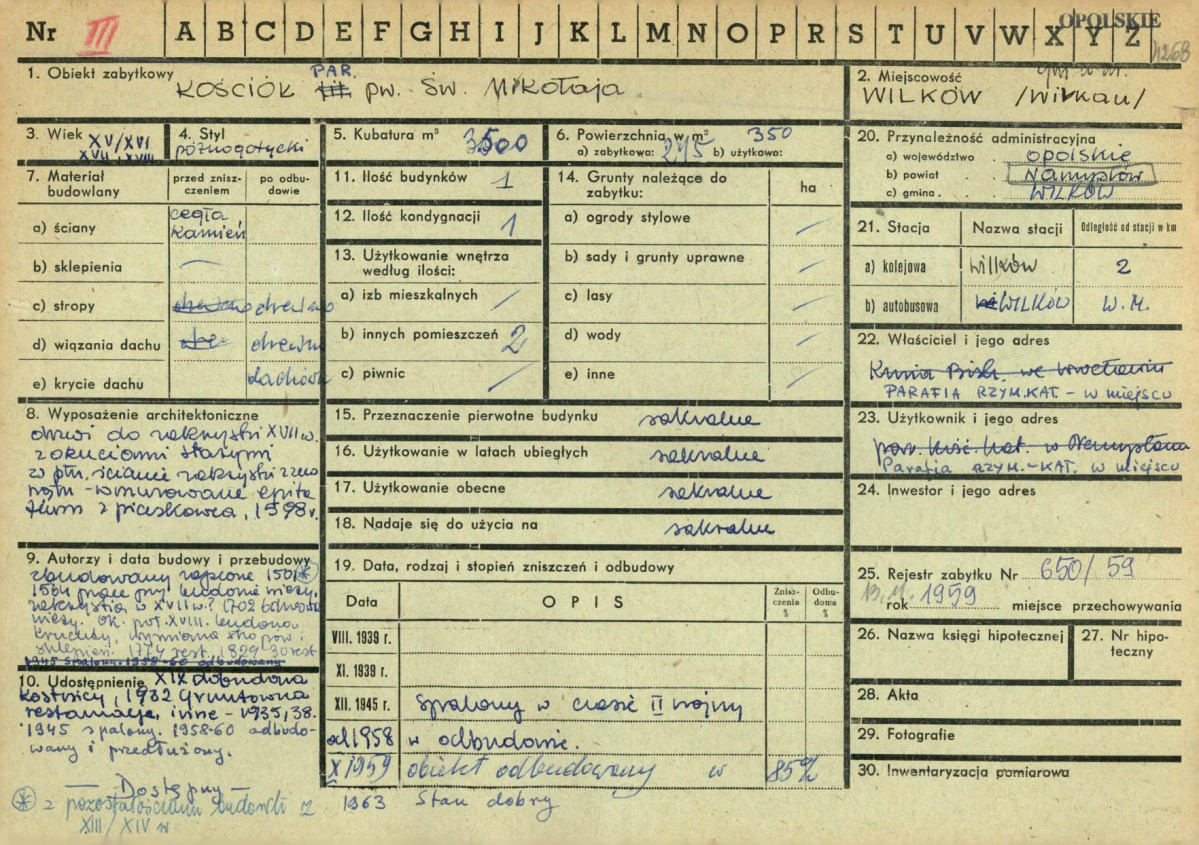 OPOLSKIE
Nr III A B C D E F G H I J K L M N O P R S T U V W X Y Z
4268
1. Obiekt zabytkowy
PAR.
KOŚCIÓŁ fil. pw. Św. Mikołaja
2. Miejscowość
WILKÓW /Wilkau/
3. Wiek
XV/XVI
XVII, XVIII
4. Styl
późnogotycki
5. Kubatura m³ 3500
6. Powierzchnia w m² 350
a) zabytkowa: 275 b) użytkowa:
20. Przynależność administracyjna
a) województwo opolskie
b) powiat Namysłów
c) gmina WILKÓW
7. Materiał budowlany
przed zniszczeniem
po odbudowie
a) ściany cegła, kamień
b) sklepienia —
c) stropy drewno drewno
d) wiązania dachu drewno
e) krycie dachu dachówka
11. Ilość budynków 1
12. Ilość kondygnacji 1
13. Użytkowanie wnętrza
według ilości:
a) izb mieszkalnych /
b) innych pomieszczeń 2
c) piwnic /
14. Grunty należące do
zabytku:
ha
a) ogrody stylowe /
b) sady i grunty uprawne /
c) lasy /
d) wody /
e) inne /
21. Stacja Nazwa stacji Odległość od stacji w km
a) kolejowa Wilków 2
b) autobusowa WILKÓW w. m.
22. Właściciel i jego adres
Kuria Bisk. we Wrocławiu
PARAFIA RZYM.KAT. – w miejscu
23. Użytkownik i jego adres
par. Kość. Kat. w Namysłowie
Parafia RZYM.-KAT. w miejscu
24. Inwestor i jego adres
8. Wyposażenie architektoniczne
drzwi do zakrystii XVII w.
z okuciami starymi
w płn. ścianie zakrystii z zewnątrz
- wmurowane epitafium
z piaskowca, 1598 r.
15. Przeznaczenie pierwotne budynku sakralne
16. Użytkowanie w latach ubiegłych sakralne
17. Użytkowanie obecne sakralne
18. Nadaje się do użycia na sakralne
9. Autorzy i data budowy i przebudowy
zbudowany zapewne
1564 prace przy budowie wieży,
zakrystia w XVII w.? 1702 odnowa
wieży. Ok. poł. XVIII. budowa
kruchty, wymiana stropów i
sklepień. 1774 rest. 1829-30 rest
1945 spalony. 1958-60 odbudowany
10. Udostępnienie
XIX dobudowa
kostnicy, 1932 gruntowna
restauracja, inne – 1935, 38.
1945 spalony. 1958-60 odbudowany
i przedłużony.
— Dostępny —
z pozostałościami budowli z
XIII/XIV w
19. Data, rodzaj i stopień zniszczeń i odbudowy
Data OPIS Zniszczenia % Odbudowa %
VIII. 1939 r.
XI. 1939 r.
XII. 1945 r. Spalony w czasie II wojny
od 1958 w odbudowie.
X 1959 obiekt odbudowany w 85%
1963 Stan dobry
25. Rejestr zabytku Nr 650/59
rok 1959 miejsce przechowywania
26. Nazwa księgi hipotecznej
27. Nr hipoteczny
28. Akta
29. Fotografie
30. Inwentaryzacja pomiarowa